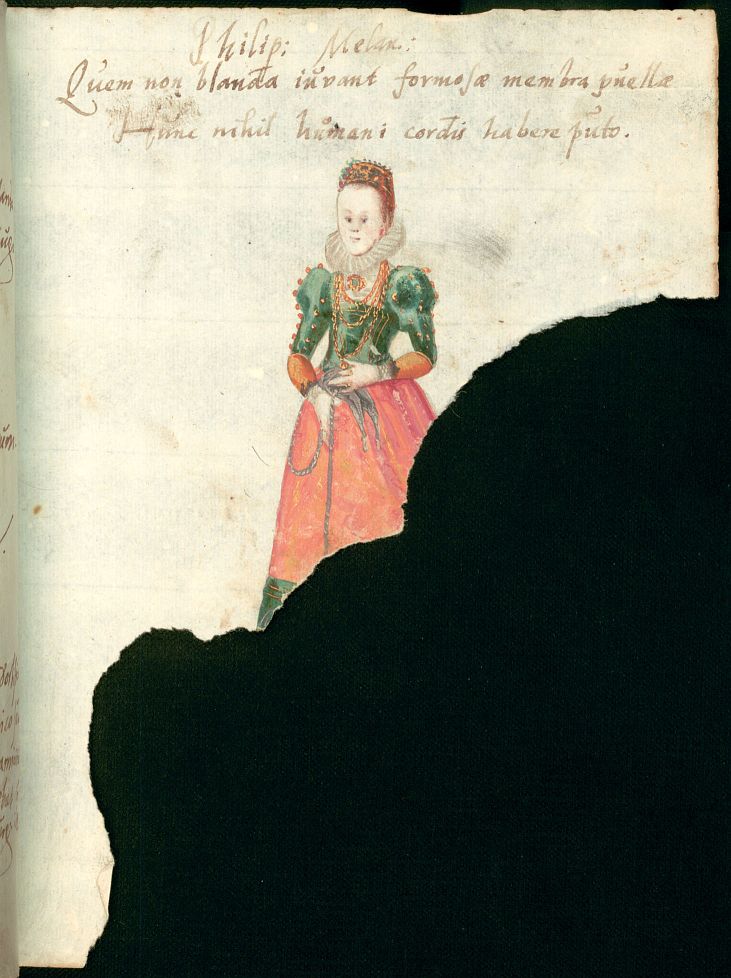 Philip: Melan:
Quem non blanda iuvant formosæ membra puellæ
Hunc nihil humani cordis habere puto.